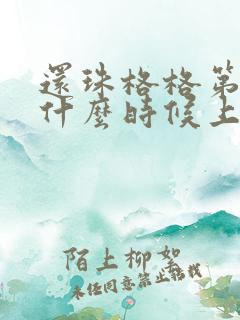 還珠格格第
什麼時候上
陌上柳絮
未任同意禁止轉載